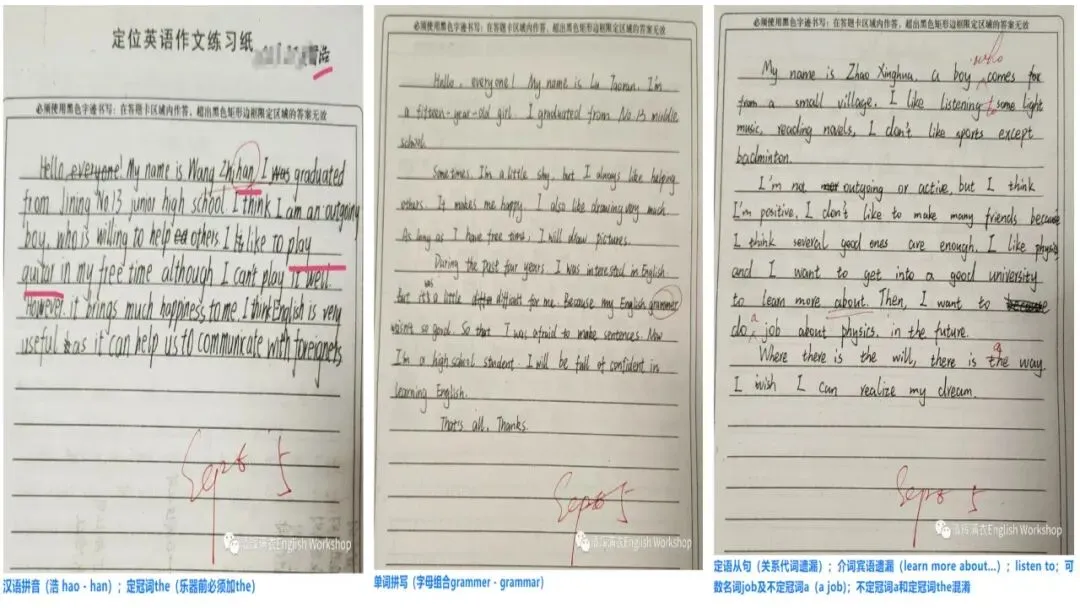 定位英语作文练习纸
浩
必须使用黑色字迹书写：在答题卡区域内作答，超出黑色矩形边框限定区域的答案无效
Hello, everyone! My name is Wang Zhihan. I was graduated
from Jining No.13 junior high school. I think I am an outgoing
boy, who is willing to help others. I like to play
guitar in my free time although I can't play it well.
However, it brings much happiness to me. I think English is very
useful as it can help us to communicate with foreigners
Sept 5
清辉满衣English Workshop
汉语拼音（浩 hao - han）；定冠词the（乐器前必须加the）
必须使用黑色字迹书写：在答题卡区域内作答，超出黑色矩形边框限定区域的答案无效
Hello, everyone! My name is Lu Taoran. I'm
a fifteen-year-old girl. I graduated from No.13 middle
school.
Sometimes I'm a little shy, but I always like helping
others. It makes me happy. I also like drawing very much.
As long as I have free time, I will draw pictures.
During the past four years, I was interested in English
but it's was a little difficult for me. Because my English grammer
wasn't so good. So that I was afraid to make sentences. Now
I'm a high school student. I will be full of confident in
learning English.
That's all. Thanks.
Sept 5
清辉满衣English Workshop
单词拼写（字母组合grammer - grammar）
必须使用黑色字迹书写：在答题卡区域内作答，超出黑色矩形边框限定区域的答案无效
who
My name is Zhao Xinghua, a boy comes for
from a small village. I like listening to some light
music, reading novels, I don't like sports except
badminton.
I'm not outgoing or active, but I think
I'm positive. I don't like to make many friends because
I think several good ones are enough. I like physics
and I want to get into a good university
to learn more about. Then, I want to because
do a job about physics in the future.
Where there is the will, there is a the way.
I wish I can realize my dream.
Sept 5
清辉满衣English Workshop
定语从句（关系代词遗漏）；介词宾语遗漏（learn more about...）；listen to；可
数名词job及不定冠词a（a job）；不定冠词a和定冠词the混淆